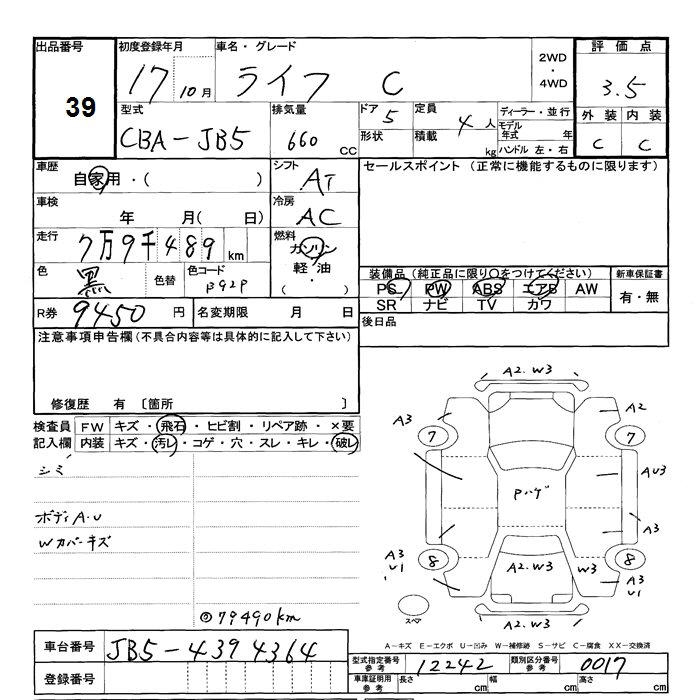 出品番号 39
初度登録年月 17 10月
車名・グレード ライフ C
2WD・4WD
評価点 3.5
型式 CBA-JB5
排気量 660 CC
ドア 5
形状
定員 4人
積載 kg
ディーラー・並行
モデル年式 年
ハンドル 左・右
外装 内装
C C
車歴 自家用・( )
シフト AT
セールスポイント (正常に機能するものに限ります)
車検 年 月( 日)
冷房 AC
走行 7万9千489 km
燃料 ガソリン
軽・油
( ・ )
色 黒 色替 色コード B92P
装備品 (純正品に限り○をつけてください) 新車保証書
PS PW ABS エアB AW 有・無
SR ナビ TV カワ
R券 9450 円 名変期限 月 日
後日品
注意事項申告欄 (不具合内容等は具体的に記入して下さい)
修復歴 有 〔箇所 〕
検査員 FW キズ・飛石・ヒビ割・リペア跡・×要
記入欄 内装 キズ・汚レ・コゲ・穴・スレ・キレ・破レ
シミ
ボディA.U
Wカバーキズ
79490km
A2.W3
A3 A2
7 7
Pハゲ AU3
A3
A3 U1 8 A2.W3 W3 8 A3 U1
スペア A2.W3
A-キズ E-エクボ U-凹み W-補修跡 S-サビ C-腐食 XX-交換済
車台番号 JB5-4394364
型式指定番号 参考 12242 類別区分番号 参考 0017
登録番号
車庫証明用 参考 長さ cm 幅 cm 高さ cm